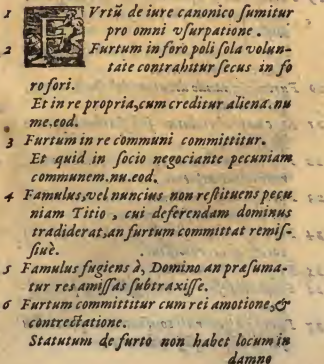 1 FVrtū de iure canonico ſumitur
pro omni vſurpatione.
2 Furtum in foro poli ſola volun-
tate contrahitur ſecus in fo
ro fori.
Et in re propria, cum creditur aliena. nu
me. eod.
3 Furtum in re communi committitur.
Et quid in ſocio negociante pecuniam
communem. nu. eod.
4 Famulus, vel nuncius non reſtituens pecu
niam Titio, cui deferendam dominus
tradiderat, an furtum committat remiſ-
ſiuè.
5 Famulus fugiens à, Domino an præſuma-
tur res amiſſas ſubtraxiſſe.
6 Furtum committitur cum rei amotione, &
contrectatione.
Statutum de furto non habet locum in
damno